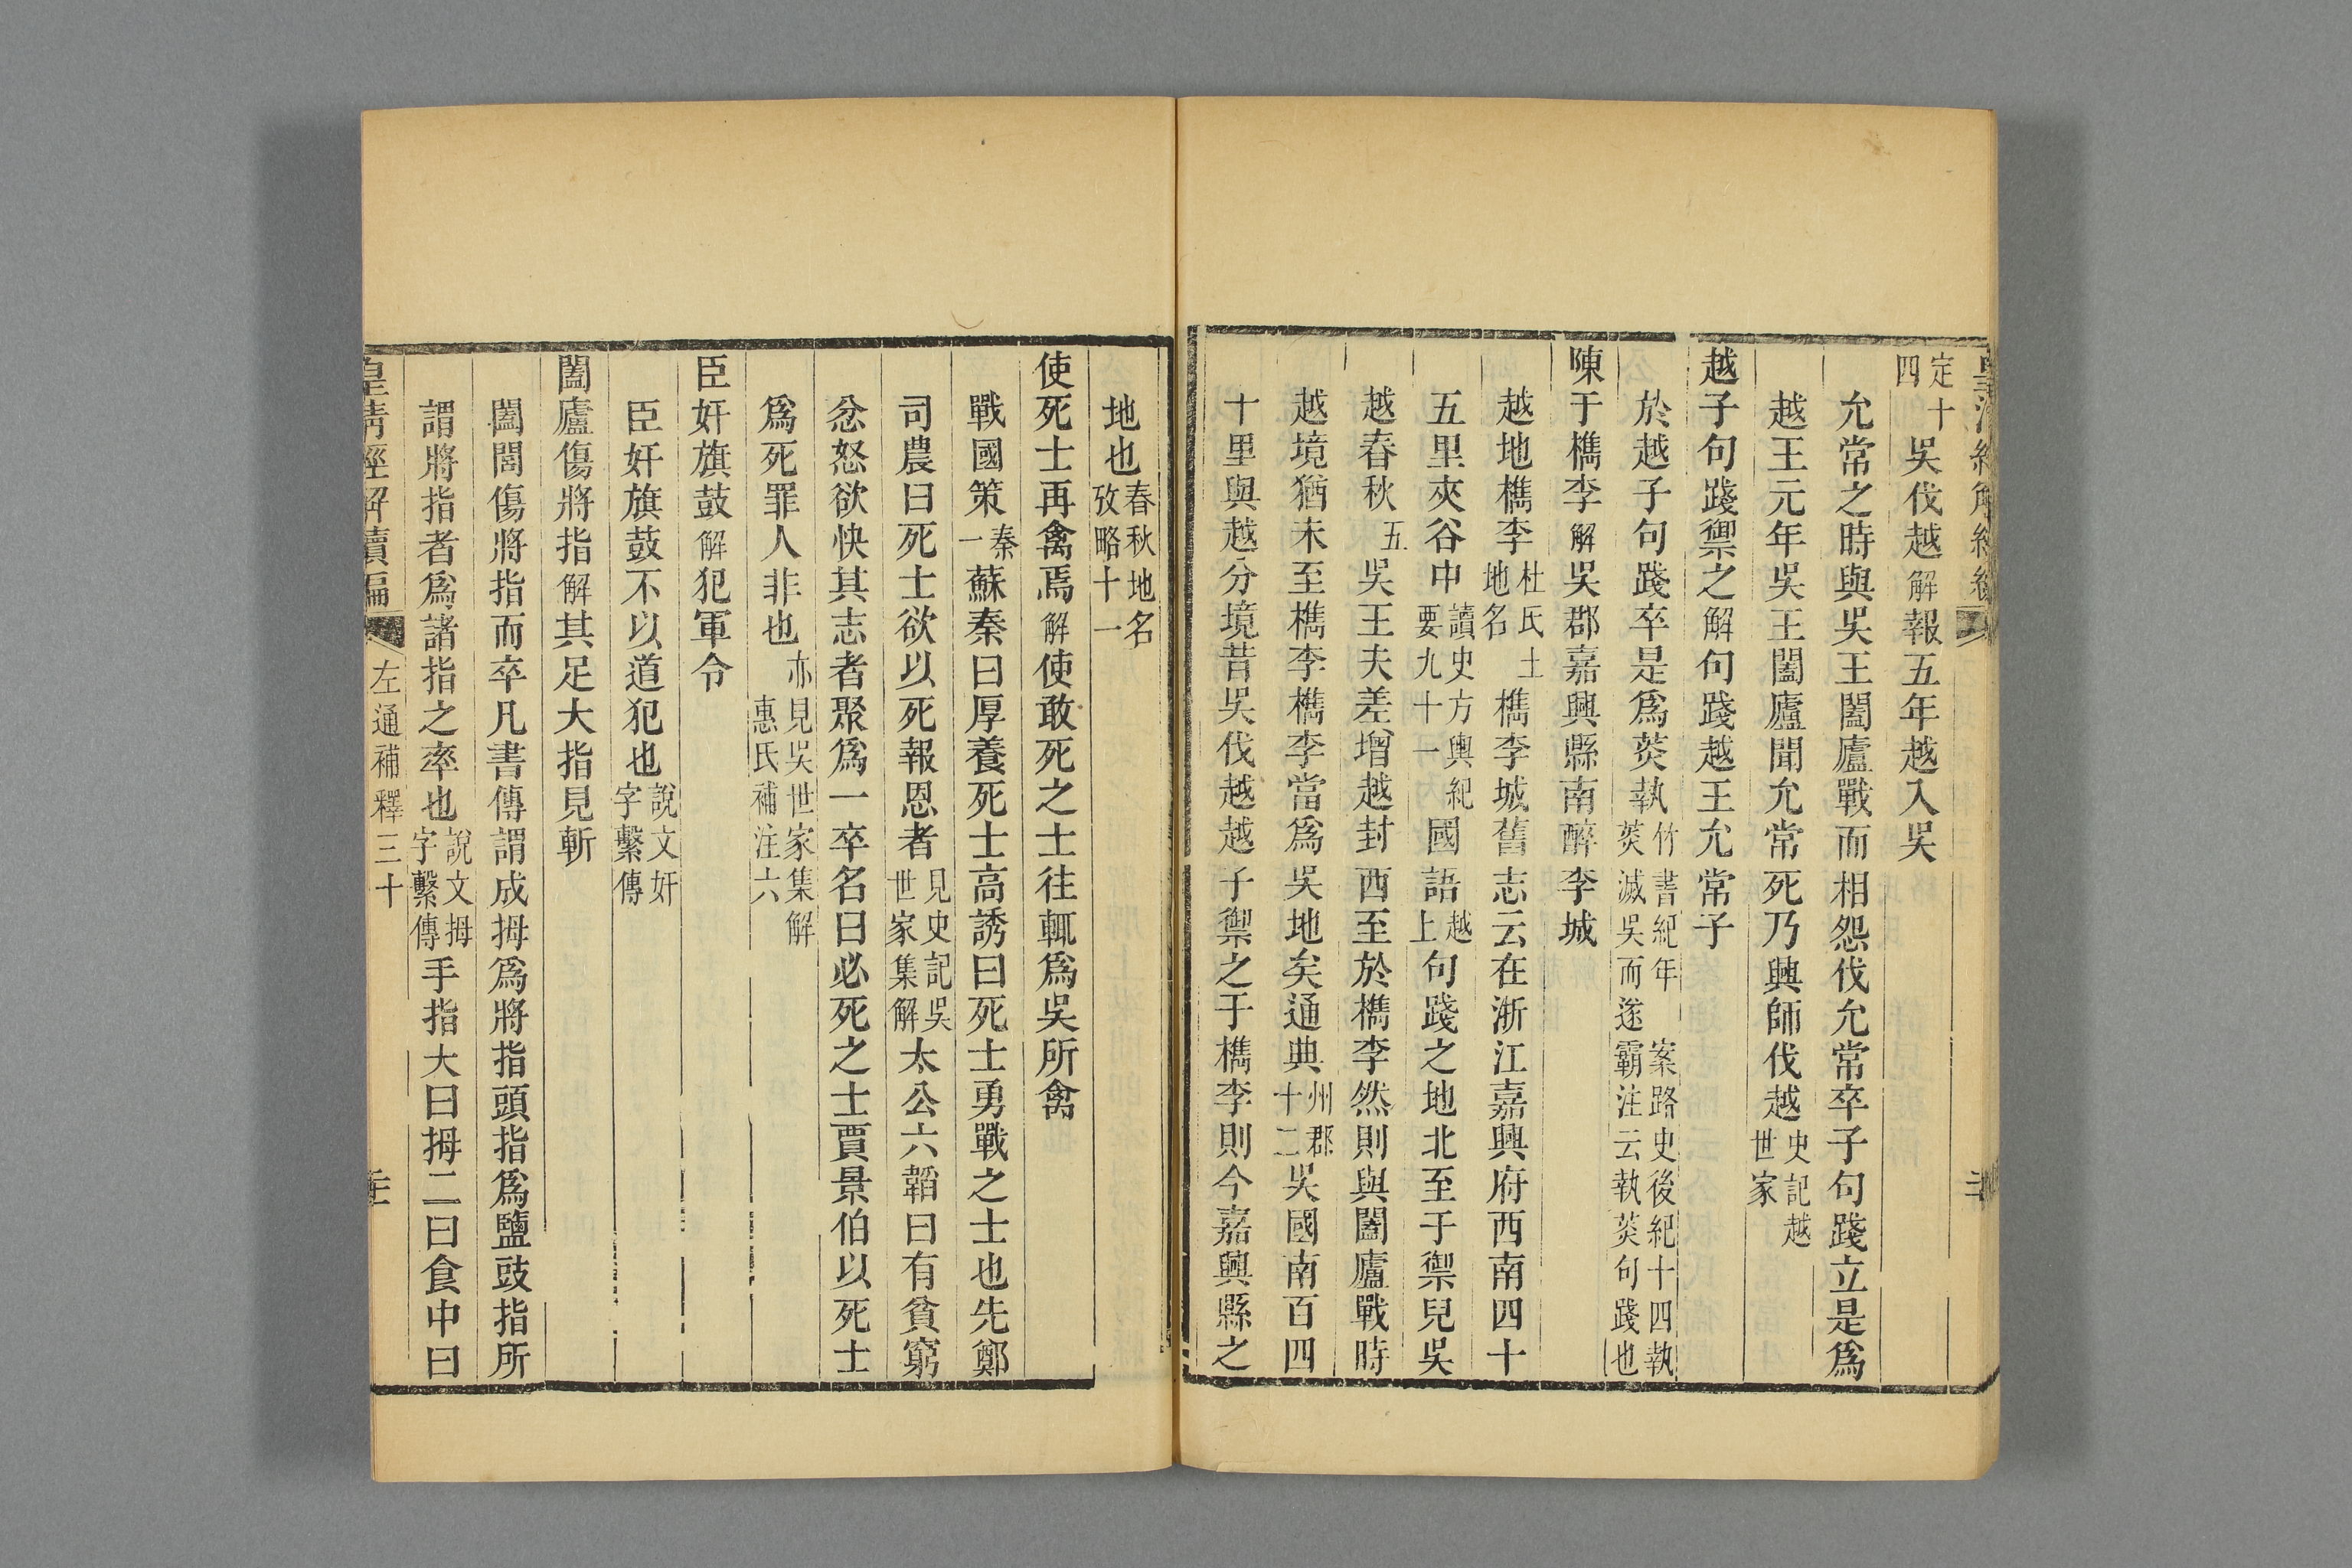 定十四吳伐越解報五年越入吳
允常之時與吳王闔廬戰而相怨伐允常卒子句踐立是爲
越王元年吳王闔廬聞允常死乃興師伐越史記越世家
越子句踐禦之解句踐越王允常子
於越子句踐卒是爲菼執竹書紀年 案路史後紀十四執菼滅吳而遂霸注云執菼句踐也
陳于檇李解吳郡嘉興縣南醉李城
越地檇李杜氏土地名檇李城舊志云在浙江嘉興府西南四十
五里夾谷中讀史方輿紀要九十一國語越上句踐之地北至于禦兒吳
越春秋五吳王夫差增越封西至於檇李然則與闔廬戰時
越境猶未至檇李檇李當爲吳地矣通典州郡十二吳國南百四
十里與越分境昔吳伐越越子禦之于檇李則今嘉興縣之
地也春秋地名攷略十一
使死士再禽焉解使敢死之士往輒爲吳所禽
戰國策秦一蘇秦曰厚養死士高誘曰死士勇戰之士也先鄭
司農曰死士欲以死報恩者見史記吳世家集解太公六韜曰有貧窮
忿怒欲快其志者聚爲一卒名曰必死之士賈景伯以死士
爲死罪人非也亦見吳世家集解惠氏補注六
臣奸旗鼓解犯軍令
臣奸旗鼓不以道犯也說文奸字繫傳
闔廬傷將指解其足大指見斬
闔閭傷將指而卒凡書傳謂成拇爲將指頭指爲鹽豉指所
謂將指者爲諸指之率也說文拇字繫傳手指大曰拇二曰食中曰
皇清經解續編 左通補釋三十